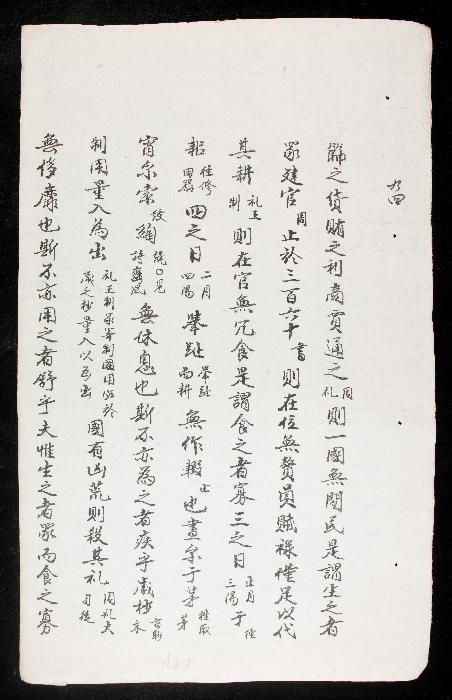 九四
貨賄之利商賈通之周礼則一國無閒民是謂生之者
眾建官周止於三百六十書則在位無贅員賦祿僅足以代
其耕礼王制則在官無冗食是謂食之者寡三之日正月三陽于
耜往修田器四之日二月四陽舉趾舉趾而耕無作輟也晝尓于茅往取茅
宵尓索綯絞繩見詩豳風無休息也斯不亦為之者疾乎歲杪
制用量入為出礼王制冢宰制國用必於歲之杪量入以為出國有凶荒則殺其礼周礼大司徒
無侈靡也斯不亦用之者舒乎夫惟生之者眾而食之寡